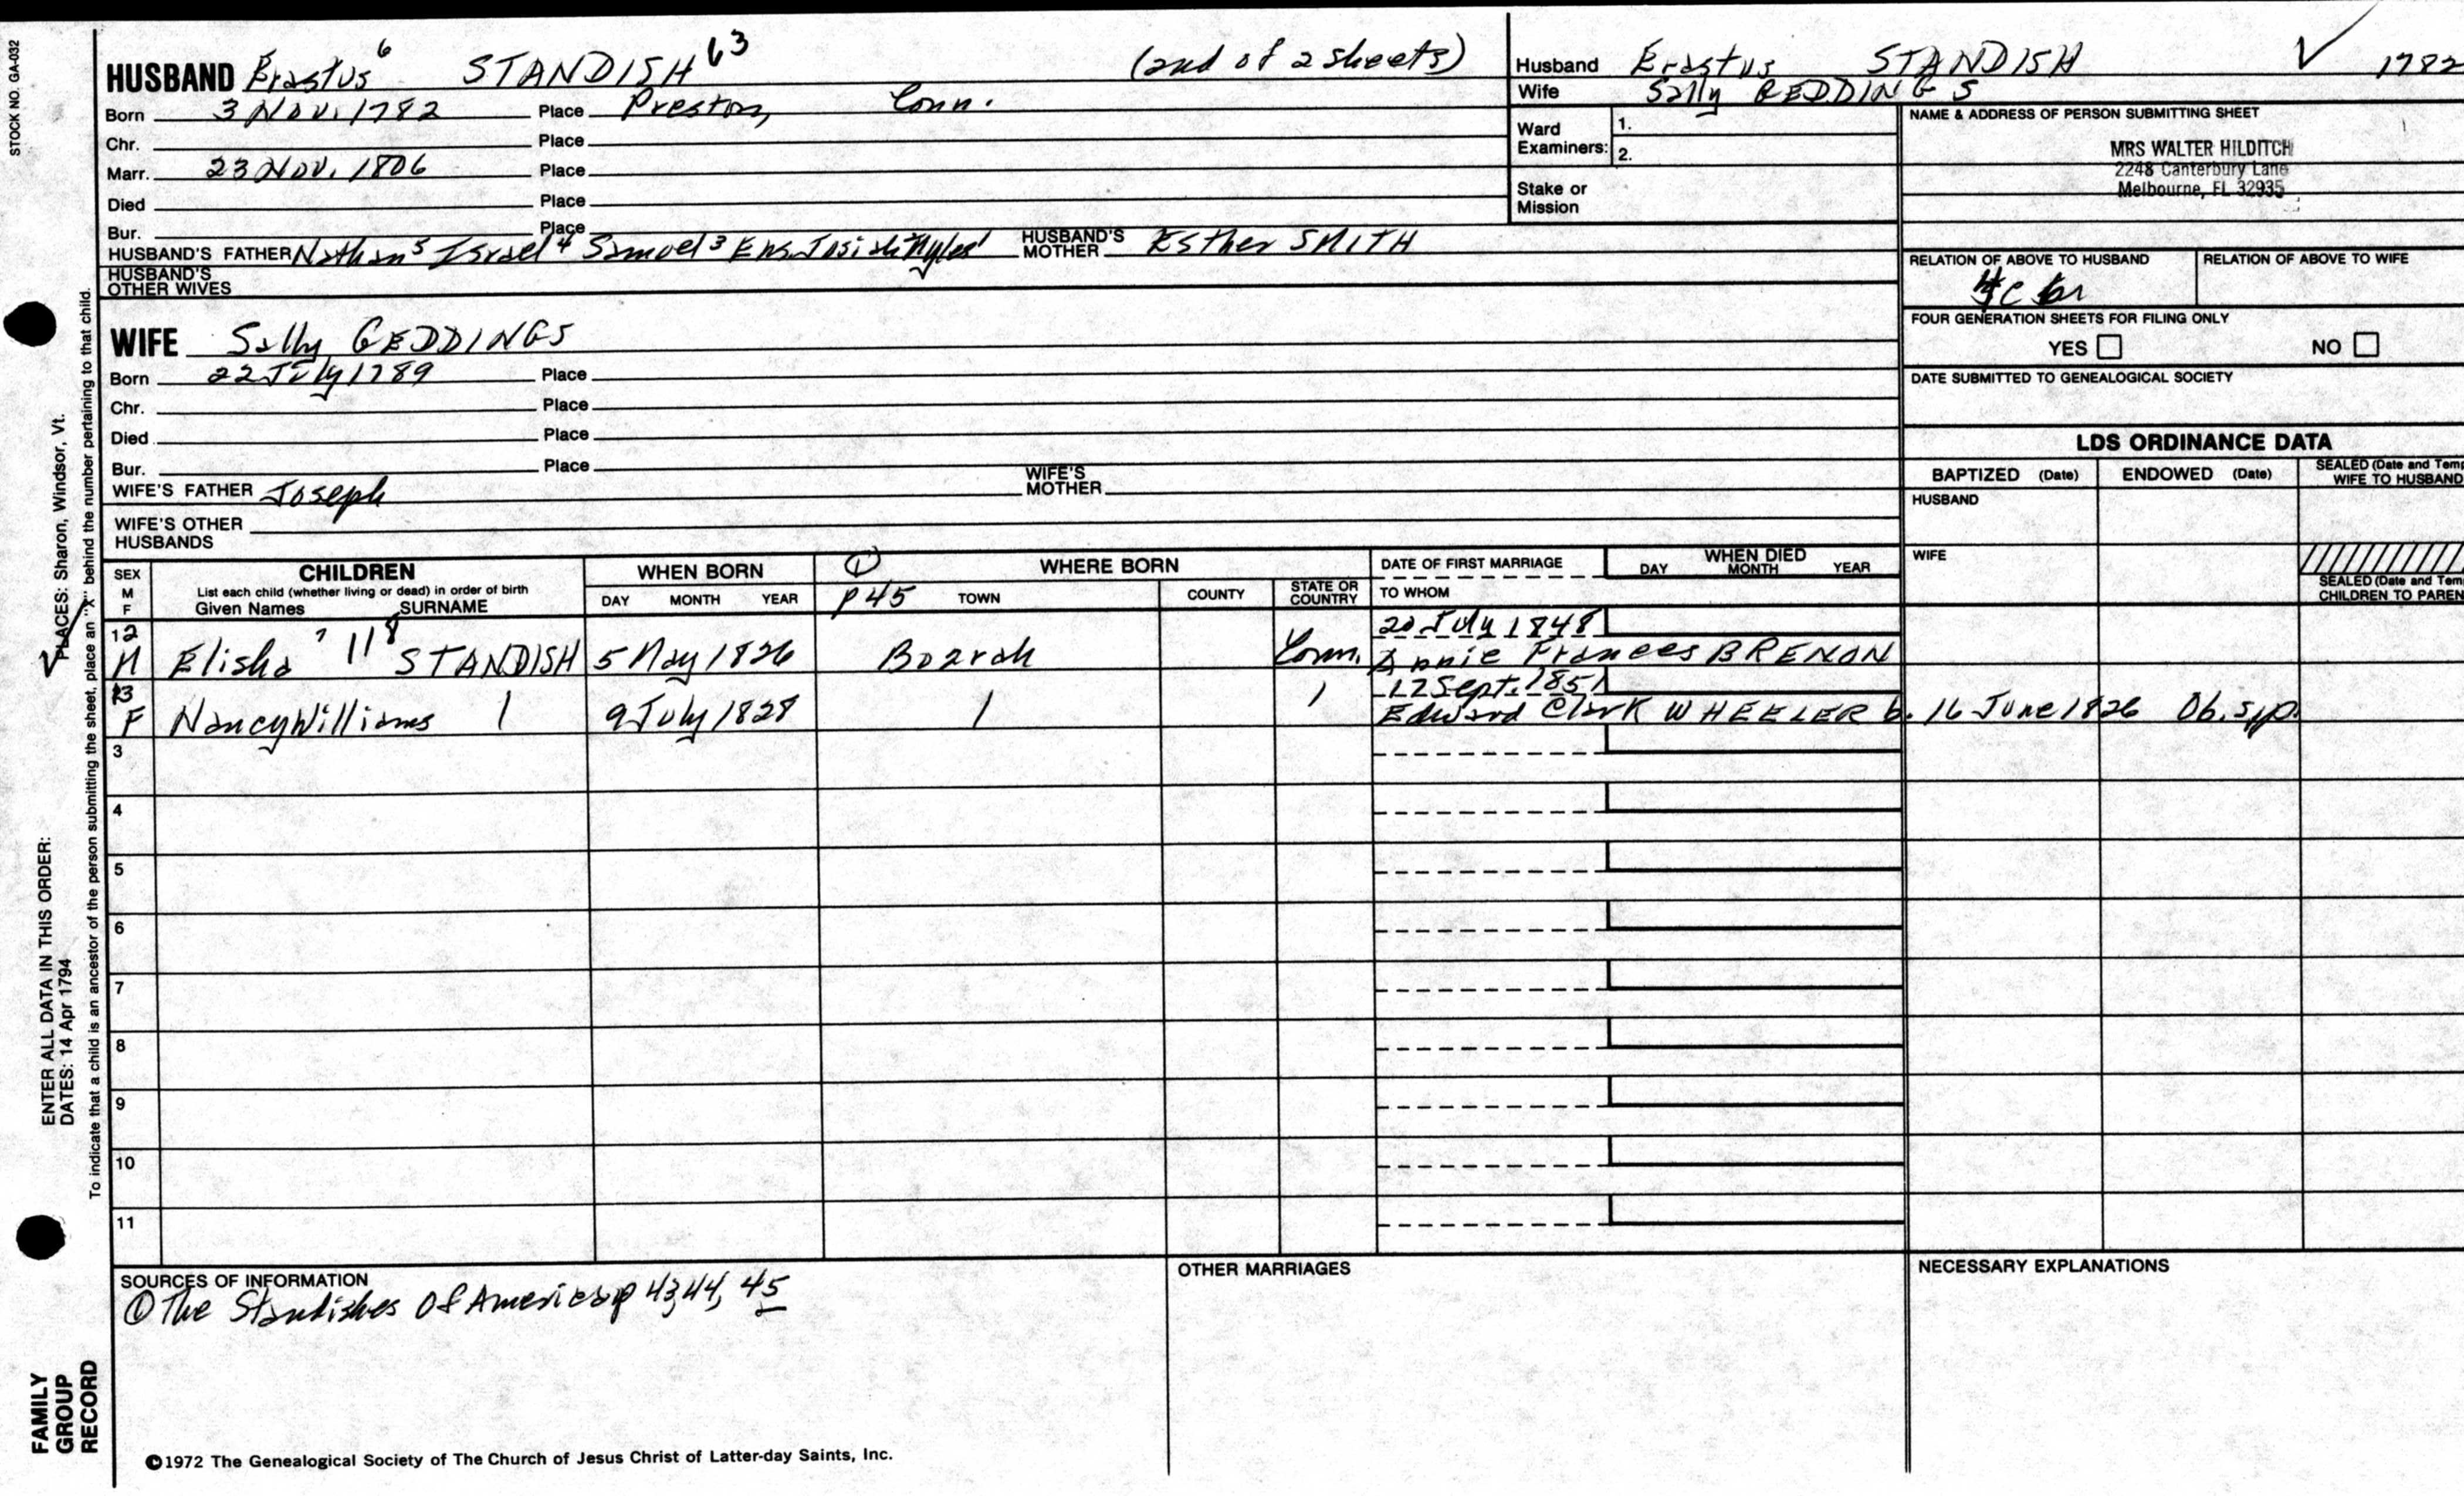 STOCK NO. GA-032
HUSBAND Erastus 6 STANDISH 63 (2nd of 2 sheets)
Born 3 Nov. 1782 Place Preston, Conn.
Chr. Place
Marr. 23 Nov. 1806 Place
Died Place
Bur. Place
HUSBAND'S FATHER Nathan 5 Israel 4 Samuel 3 Ens. Josiah 2 Myles 1 HUSBAND'S MOTHER Esther SMITH
HUSBAND'S OTHER WIVES
WIFE Sally GEDDINGS
Born 22 July 1789 Place
Chr. Place
Died Place
Bur. Place
WIFE'S FATHER Joseph WIFE'S MOTHER
WIFE'S OTHER HUSBANDS
Husband Erastus STANDISH 1782
Wife Sally GEDDINGS
Ward Examiners: 1.
2.
Stake or Mission
NAME & ADDRESS OF PERSON SUBMITTING SHEET
MRS WALTER HILDITCH
2248 Canterbury Lane
Melbourne, FL 32935
RELATION OF ABOVE TO HUSBAND RELATION OF ABOVE TO WIFE
FOUR GENERATION SHEETS FOR FILING ONLY
YES NO
DATE SUBMITTED TO GENEALOGICAL SOCIETY
LDS ORDINANCE DATA
BAPTIZED (Date) ENDOWED (Date) SEALED (Date and Temp
WIFE TO HUSBAND
HUSBAND
WIFE
SEALED (Date and Tem
CHILDREN TO PAREN
SEX M F CHILDREN WHEN BORN ① WHERE BORN DATE OF FIRST MARRIAGE WHEN DIED
List each child (whether living or dead) in order of birth
Given Names SURNAME DAY MONTH YEAR p 45 TOWN COUNTY STATE OR COUNTRY TO WHOM DAY MONTH YEAR
12 20 July 1848
M Elisha 7 118 STANDISH 5 May 1826 Bozrah Conn. Annie Frances BRENON
13 12 Sept. 1851
F Nancy Williams 9 July 1828 Edward Clark WHEELER b. 16 June 1826 Ob. s.p.
3
4
5
6
7
8
9
10
11
SOURCES OF INFORMATION
① The Standishes Of America p 43, 44, 45
OTHER MARRIAGES
NECESSARY EXPLANATIONS
©1972 The Genealogical Society of The Church of Jesus Christ of Latter-day Saints, Inc.
FAMILY
GROUP
RECORD
ENTER ALL DATA IN THIS ORDER:
DATES: 14 Apr 1794
PLACES: Sharon, Windsor, Vt.
To indicate that a child is an ancestor of the person submitting the sheet, place an "X" behind the number pertaining to that child.